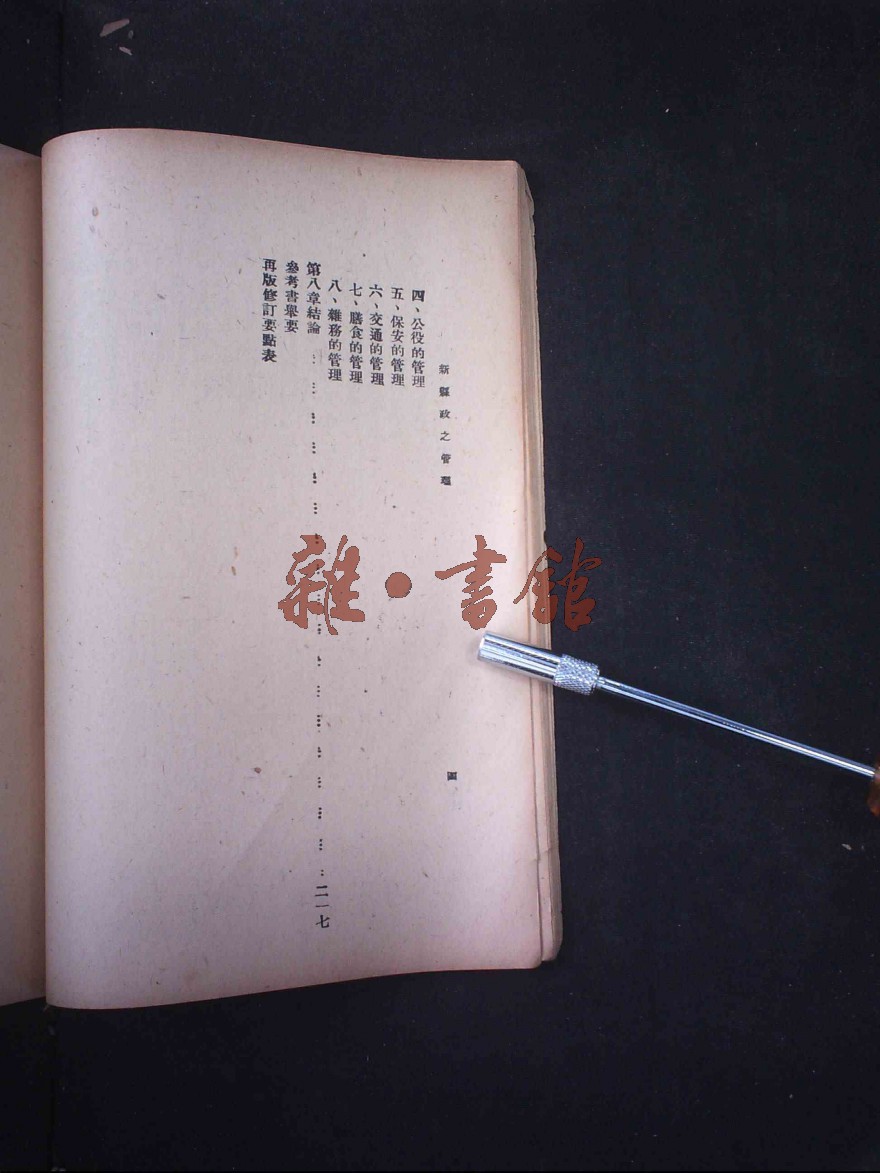 新縣政之管理
四、公役的管理
五、保安的管理
六、交通的管理
七、膳食的管理
八、雜務的管理
第八章結論⋯⋯⋯⋯⋯⋯⋯⋯⋯⋯⋯⋯⋯⋯二一七
參考書舉要
再版修訂要點表
四
雜·書館